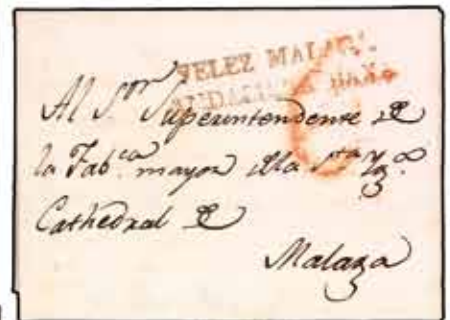 VELEZ MALAGA.
ANDALUCIA BAXA
Al S.or Superintendente de
la Fab.ca mayor de la S.ta Yg.a
Cathedral de
Malaga